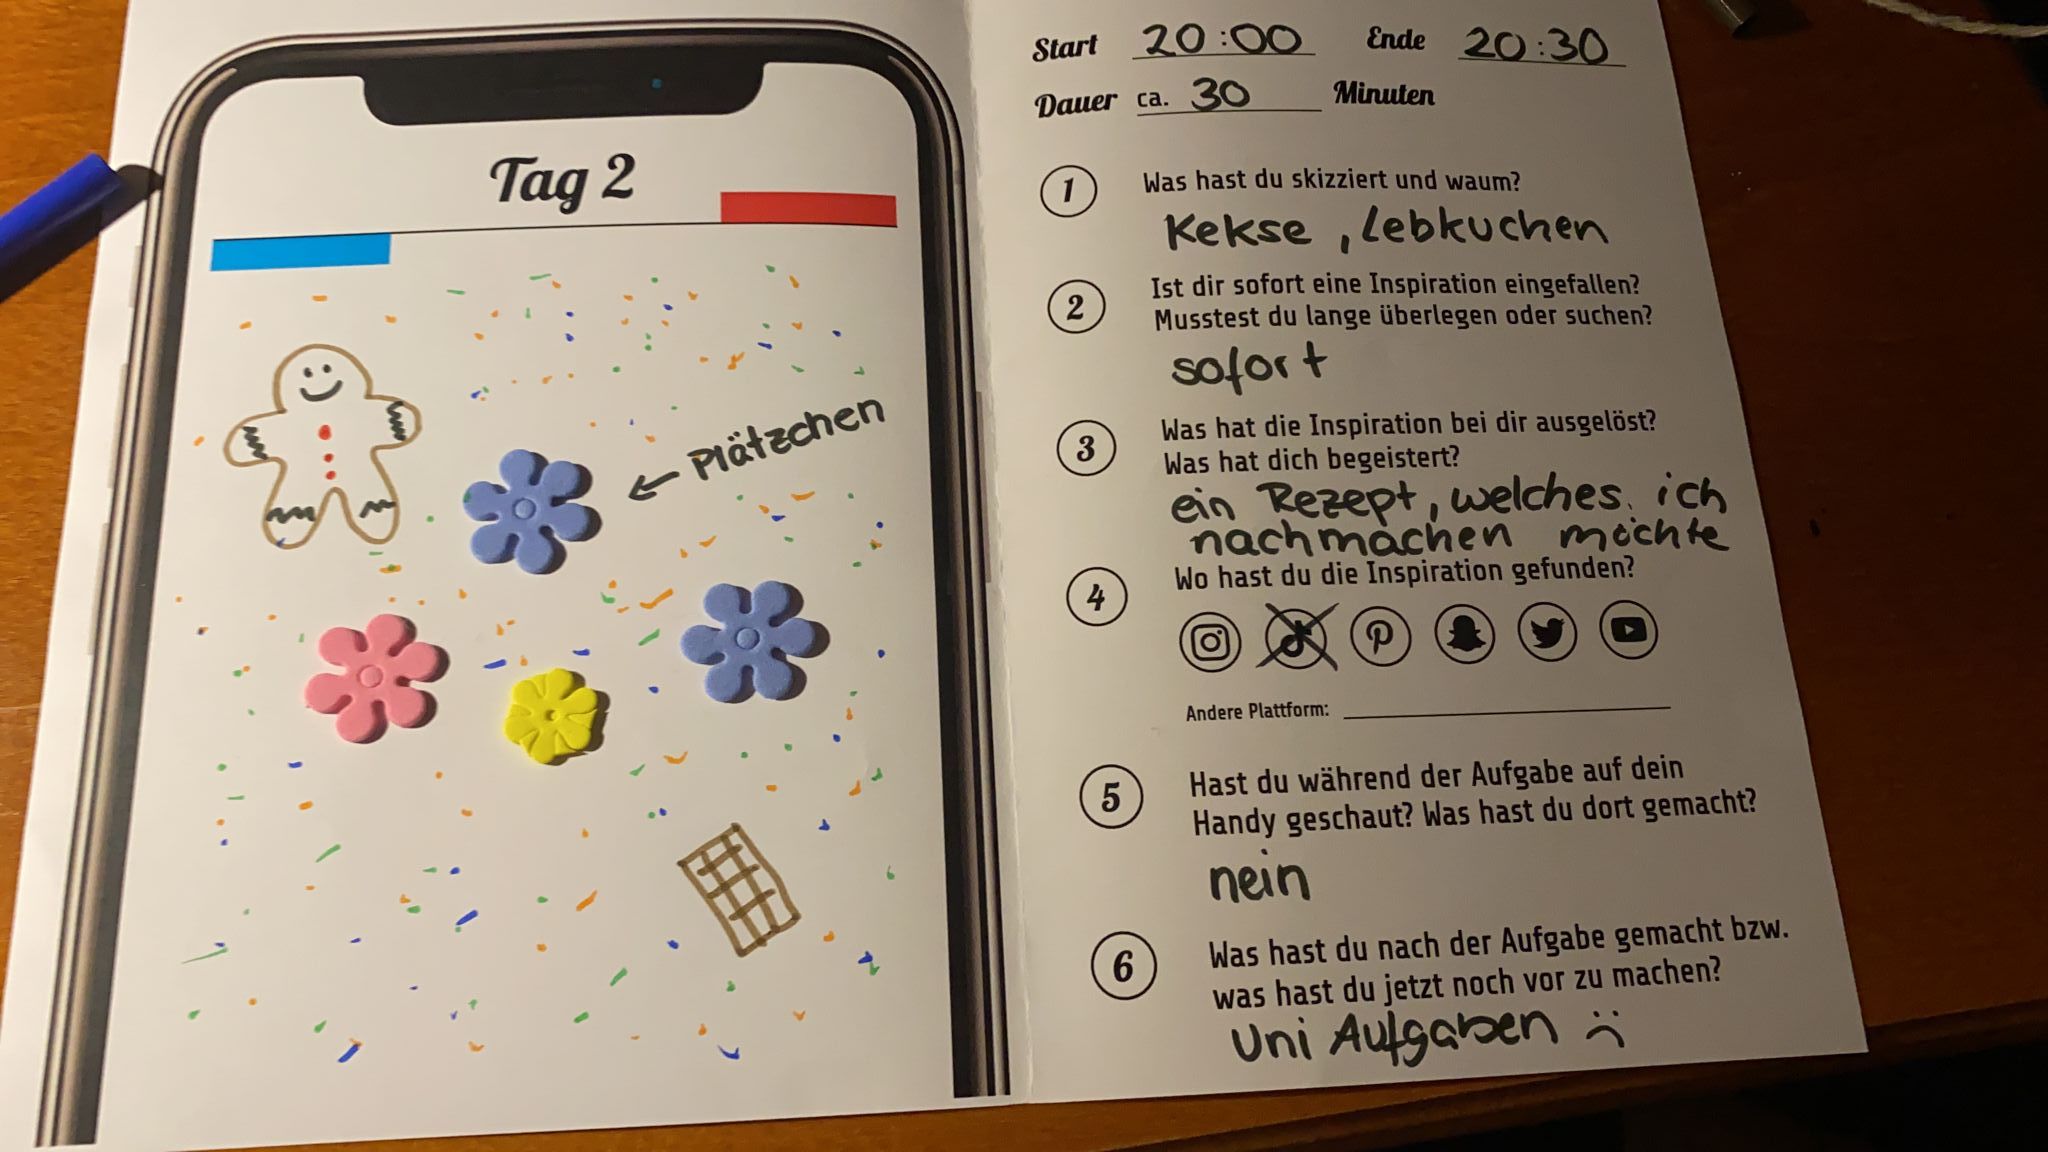 Tag 2
← Plätzchen
Start 20:00 Ende 20:30
Dauer ca. 30 Minuten
1 Was hast du skizziert und waum?
Kekse, Lebkuchen
2 Ist dir sofort eine Inspiration eingefallen?
Musstest du lange überlegen oder suchen?
sofort
3 Was hat die Inspiration bei dir ausgelöst?
Was hat dich begeistert?
ein Rezept, welches ich
nachmachen möchte
4 Wo hast du die Inspiration gefunden?
Andere Plattform:
5 Hast du während der Aufgabe auf dein
Handy geschaut? Was hast du dort gemacht?
nein
6 Was hast du nach der Aufgabe gemacht bzw.
was hast du jetzt noch vor zu machen?
Uni Aufgaben :(